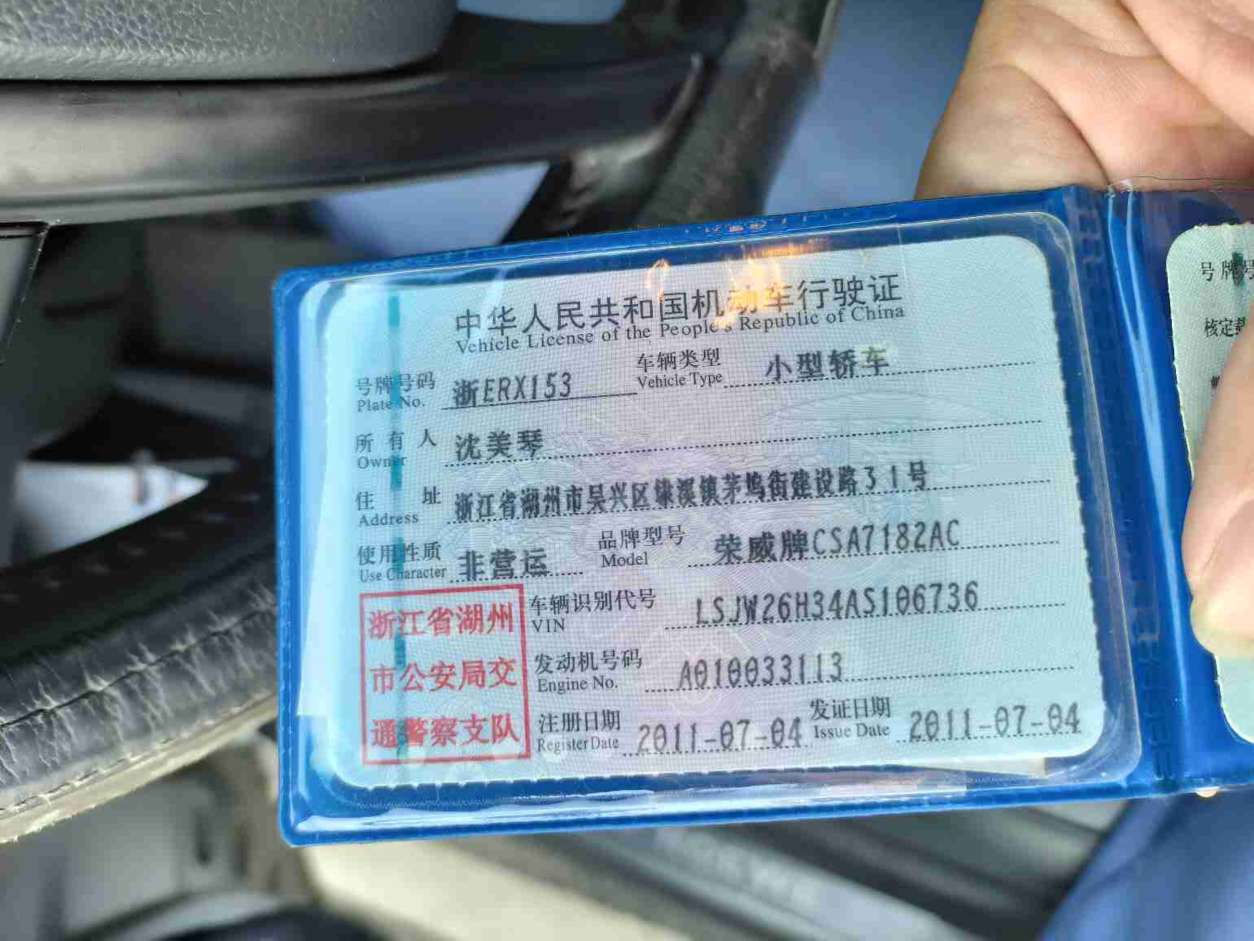 中华人民共和国机动车行驶证
Vehicle License of the People's Republic of China
号牌号码 浙ERX153 车辆类型 小型轿车
Plate No. Vehicle Type
所有人 沈美琴
Owner
住址 浙江省湖州市吴兴区埭溪镇茅坞街建设路31号
Address
使用性质 非营运 品牌型号 荣威牌CSA7182AC
Use Character Model
浙江省湖州
市公安局交
通警察支队
车辆识别代号 LSJW26H34AS106736
VIN
发动机号码 A010033113
Engine No.
注册日期 2011-07-04 发证日期 2011-07-04
Register Date Issue Date
号牌号
核定载